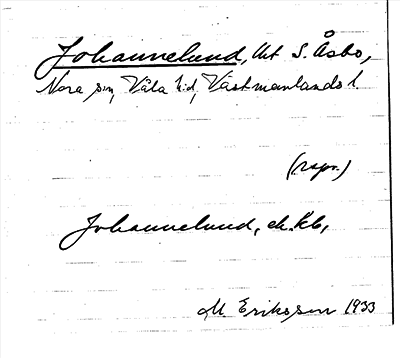 Johannelund, lht S. Åsbo,
Nora sn, Våla hd, Västmanlands l.
(rspr.)
Johannelund, ek.kb,
M. Eriksson 1933